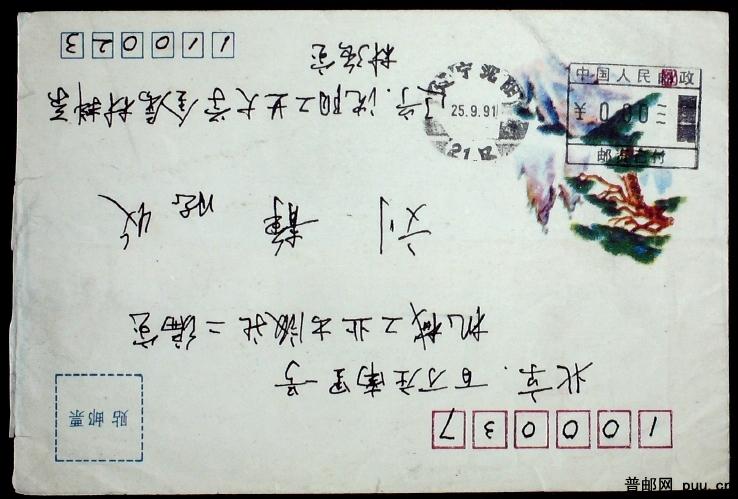 100037
北京.百万庄南里一号
机械工业出版社二编室
刘 静 收
辽宁.沈阳工业大学金属材料系
110023
贴邮票
25.9.91
中国人民邮政
邮资已付
普邮网 puu.cn